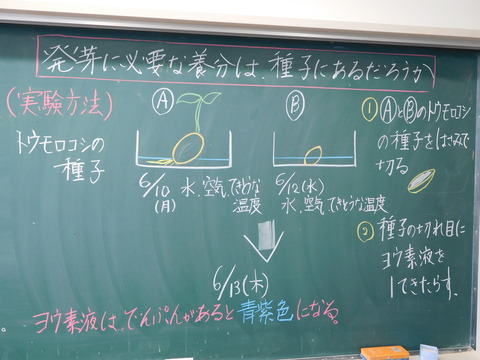 発芽に必要な養分は、種子にあるだろうか
(実験方法)
トウモロコシの
種子
Ⓐ
6/10
(月)
水、空気、てきとうな
温度
Ⓑ
6/12(水)
水、空気、てきとうな温度
① ⒶとⒷのトウモロコシ
の種子をはさみで
切る
② 種子の切れ目に
ヨウ素液を
1てきたらす。
6/13(木)
ヨウ素液は、でんぷんがあると青紫色になる。